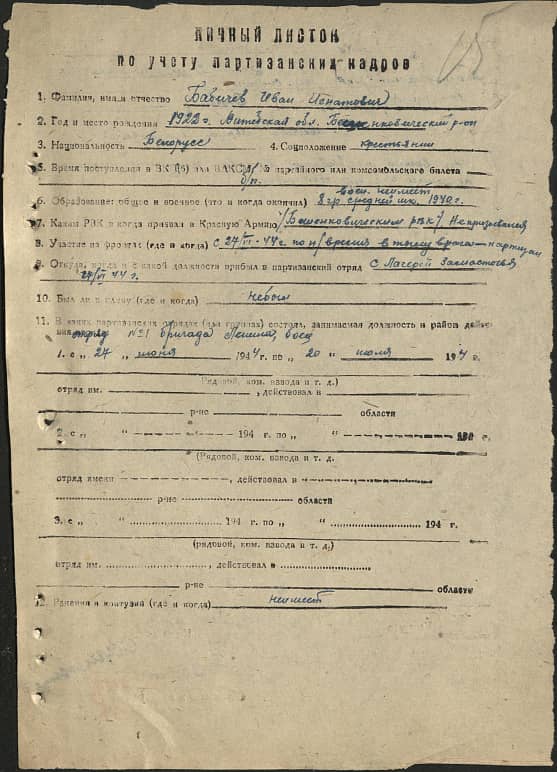 ЛИЧНЫЙ ЛИСТОК
по учету партизанских кадров
1. Фамилия, имя и отчество Бабичев Иван Игнатович
2. Год и место рождения 1922 г. Витебская обл. Бешенковический р-он
3. Национальность Белорусс 4. Соцположение крестьянин
5. Время поступления в ВК(б) или ВЛКСМ № партийного или комсомольского билета
б/п.
воен. неимеет
6. Образование: общее и военное (что и когда окончил) 8 гр. средней шк. 1940 г.
7. Каким РВК и когда призван в Красную Армию /Бешенковическим рвк/ Непризывался
8. Участие на фронтах (где и когда) с 27/VI-44 г. по н/время в тылу врага - партизан
9. Откуда, когда и с какой должности прибыл в партизанский отряд с Лагерей
27/VI 44 г.
10. Был ли в плену (где и когда) небыл
11. В каких партизанских отрядах (или группах) состоял, занимаемая должность и район действия
отряд №1 бригада Ленина, боец
1. с „ 24 „ июня 1944 г. по „ 20 “ июля 194 4 г.
(Рядовой, ком. взвода и т. д.)
отряд им. , действовал в
р-не области
2. с „ “ 194 г. по „ “ 194 г.
(Рядовой, ком. взвода и т. д.
отряд имени , действовал в
р-не области
3. с „ “ 194 г. по „ “ 194 г.
(рядовой, ком. взвода и т. д.)
отряд им. , действовал в
р-не области
12. Ранения и контузии (где и когда) неимеет